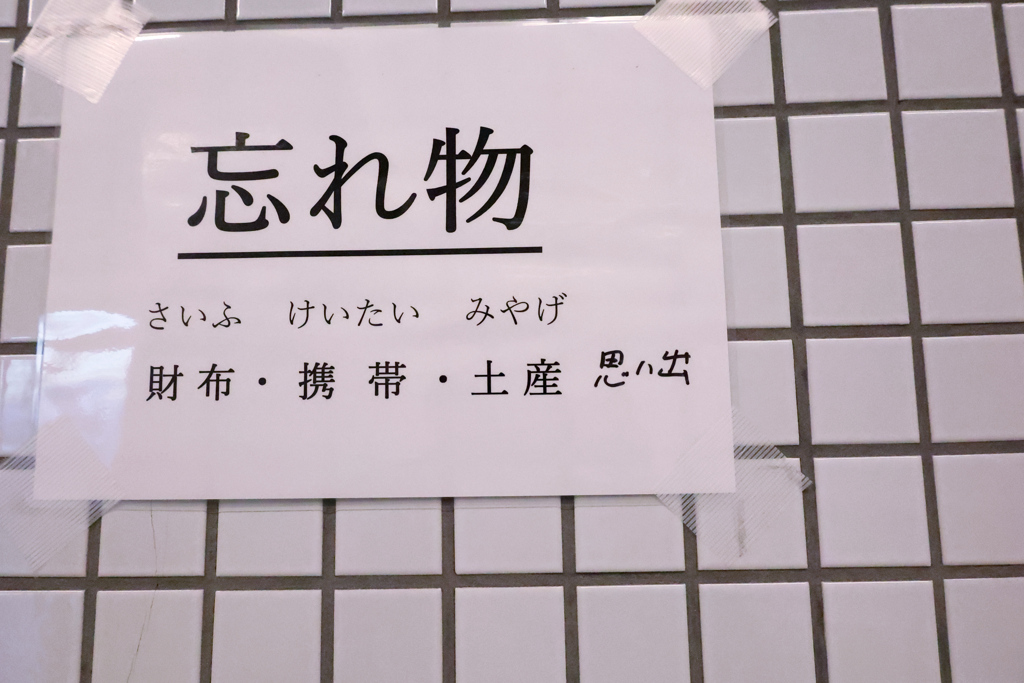 忘れ物
さいふ けいたい みやげ
財布・携帯・土産 思い出